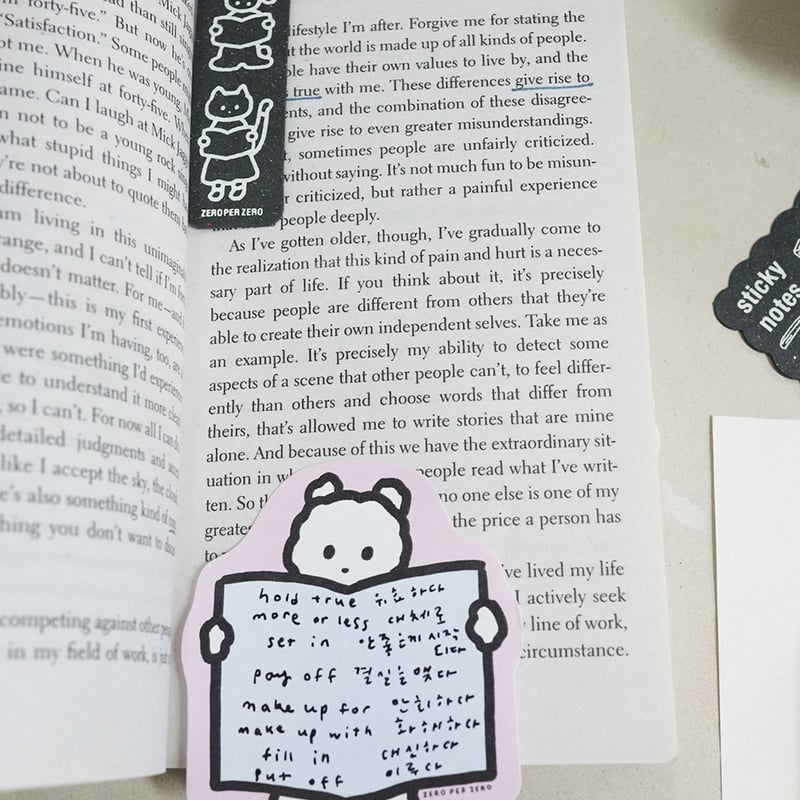 forty-five." But now he's
"Satisfaction." Some people
not me. When he was young, Mick
imagine himself at forty-five. When
same. Can I laugh at Mick Jagger
not to be a young rock singer
what stupid things I might
they're not about to quote them
difference.
am living in this unimaginable
strange, and I can't tell if I'm
doesn't matter. For me—and
this is my first experience
emotions I'm having, too, are
were something I'd experienced
to understand it more clearly
so I can't. For now all I can do
detailed judgments and accept
like I accept the sky, the clouds
there's also something kind of
thing you don't want to
competing against other people
in my field of work, is just
lifestyle I'm after. Forgive me for stating the
the world is made up of all kinds of people.
have their own values to live by, and the
true with me. These differences give rise to
and the combination of these disagree-
give rise to even greater misunderstandings.
sometimes people are unfairly criticized.
without saying. It's not much fun to be misun-
criticized, but rather a painful experience
people deeply.
As I've gotten older, though, I've gradually come to
the realization that this kind of pain and hurt is a neces-
sary part of life. If you think about it, it's precisely
because people are different from others that they're
able to create their own independent selves. Take me as
an example. It's precisely my ability to detect some
aspects of a scene that other people can't, to feel differ-
ently than others and choose words that differ from
theirs, that's allowed me to write stories that are mine
alone. And because of this we have the extraordinary sit-
uation in people read what I've writ-
ten. So no one else is one of my
greatest the price a person has
to
I've lived my life
I actively seek
line of work,
circumstance.
ZERO PER ZERO
hold true 유효하다
more or less 대체로
set in 안좋은게 시작
되다
pay off 결실을 맺다
make up for 만회하다
make up with 화해하다
fill in 대신하다
put off 미루다
ZERO PER ZERO
sticky
notes